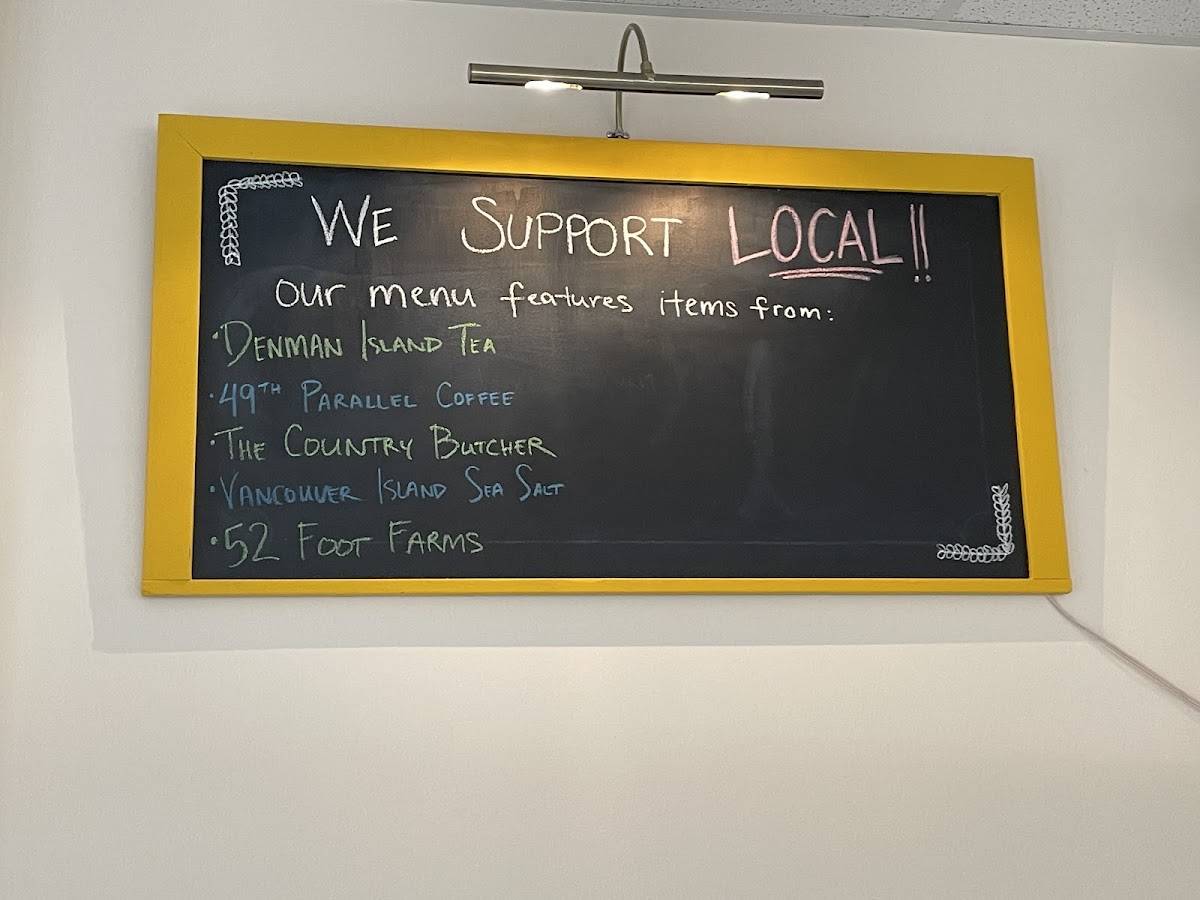 WE SUPPORT LOCAL!!
our menu features items from:
·DENMAN ISLAND TEA
·49TH PARALLEL COFFEE
·THE COUNTRY BUTCHER
·VANCOUVER ISLAND SEA SALT
·52 FOOT FARMS